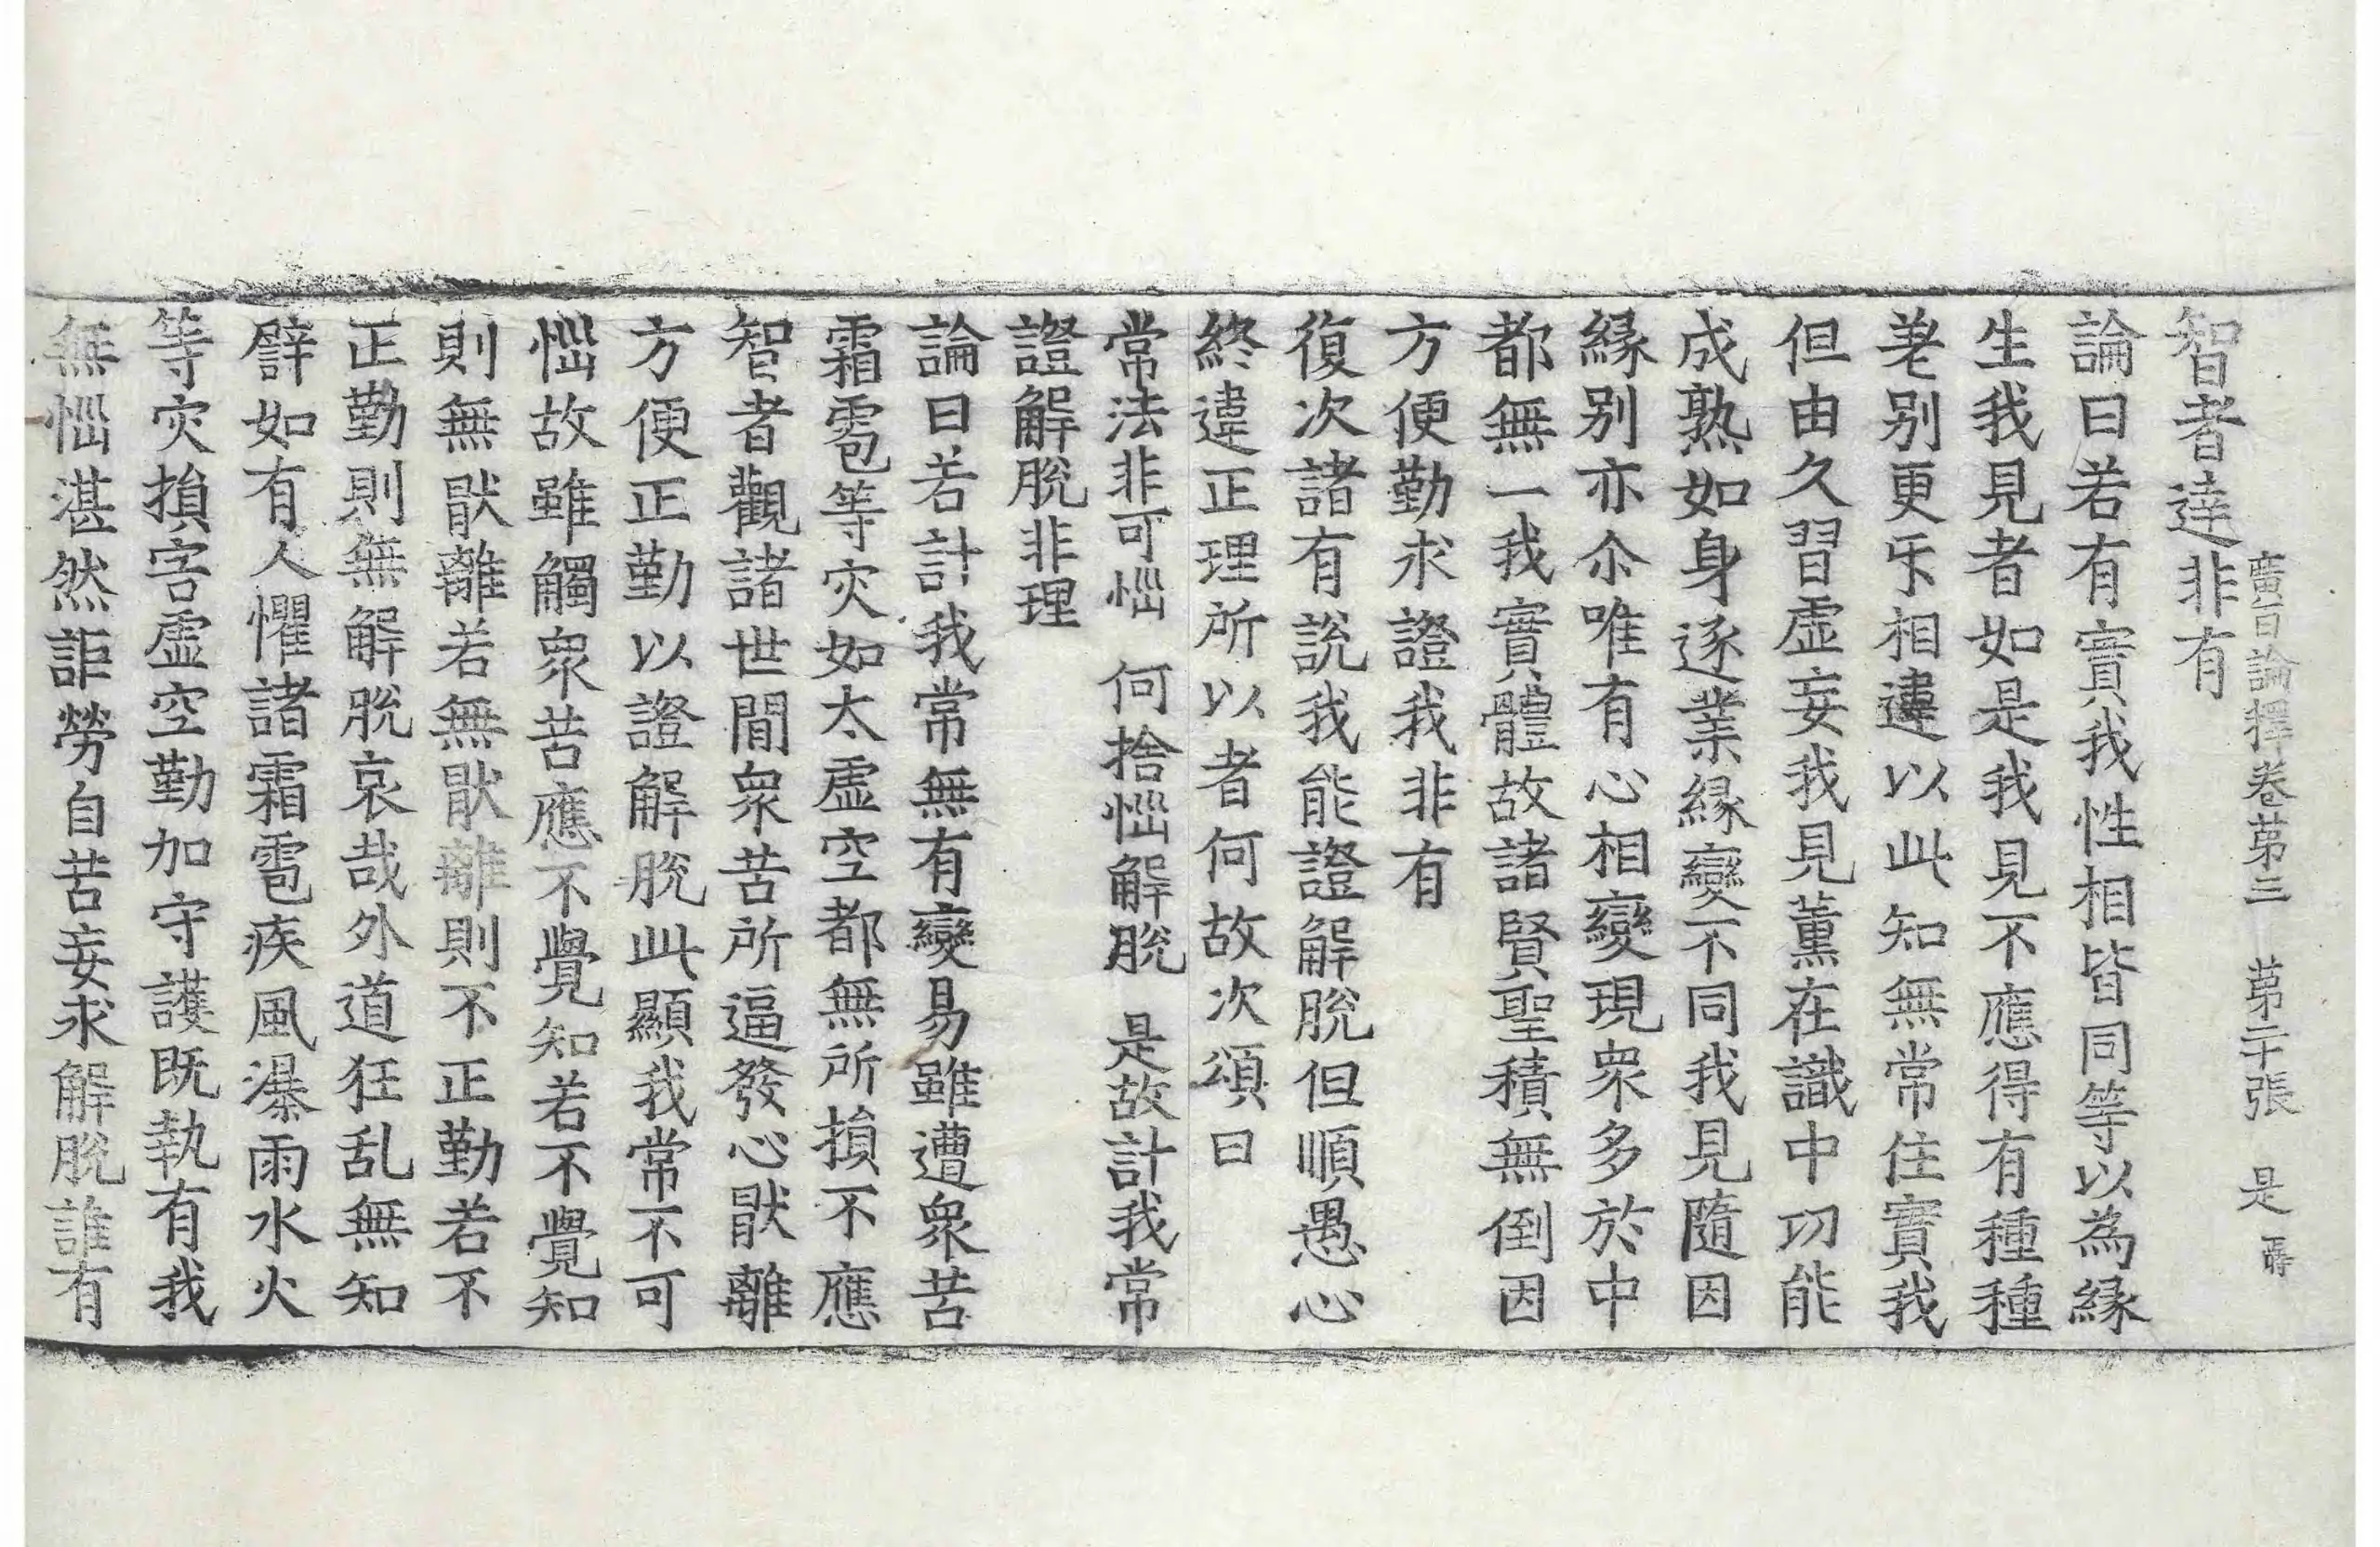 廣百論釋卷第三　第二十張　是
智者達非有
論曰若有實我性相皆同等以為緣
生我見者如是我見不應得有種種
差别更乐相違以此知無常住實我
但由久習虛妄我見薰在識中功能
成熟如身逐業緣變不同我見隨因
緣别亦尒唯有心相變現衆多於中
都無一我實體故諸賢聖積無倒因
方便勤求證我非有
復次諸有說我能證解脫但順愚心
終違正理所以者何故次頌曰
常法非可惱　何捨惱解脫　是故計我常
證解脫非理
論曰若計我常無有變易雖遭衆苦
霜雹等灾如太虛空都無所損不應
智者觀諸世間衆苦所逼發心猒離
方便正勤以證解脫此顯我常不可
惱故雖觸衆苦應不覺知若不覺知
則無猒離若無猒離則不正勤若不
正勤則無解脫哀哉外道狂乱無知
譬如有人懼諸霜雹疾風瀑雨水火
等灾損害虛空勤加守護既執有我
無惱湛然詎勞自苦妄求解脫誰有